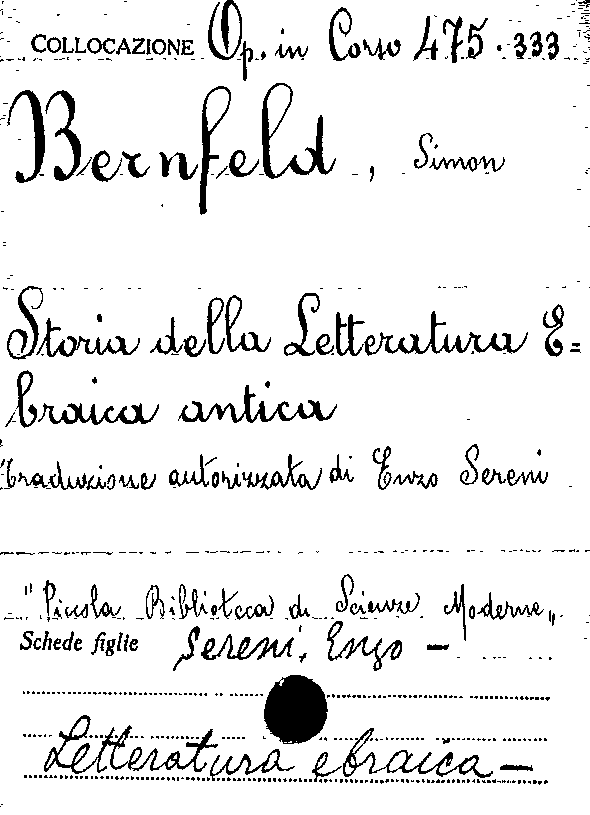 COLLOCAZIONE Op. in Corso 475.333
Bernfeld, Simon
Storia della Letteratura E=
braica antica
Traduzione autorizzata di Enzo Sereni
"Piccola Biblioteca di Scienze Moderne„
Schede figlie Sereni, Enzo —
Letteratura ebraica —